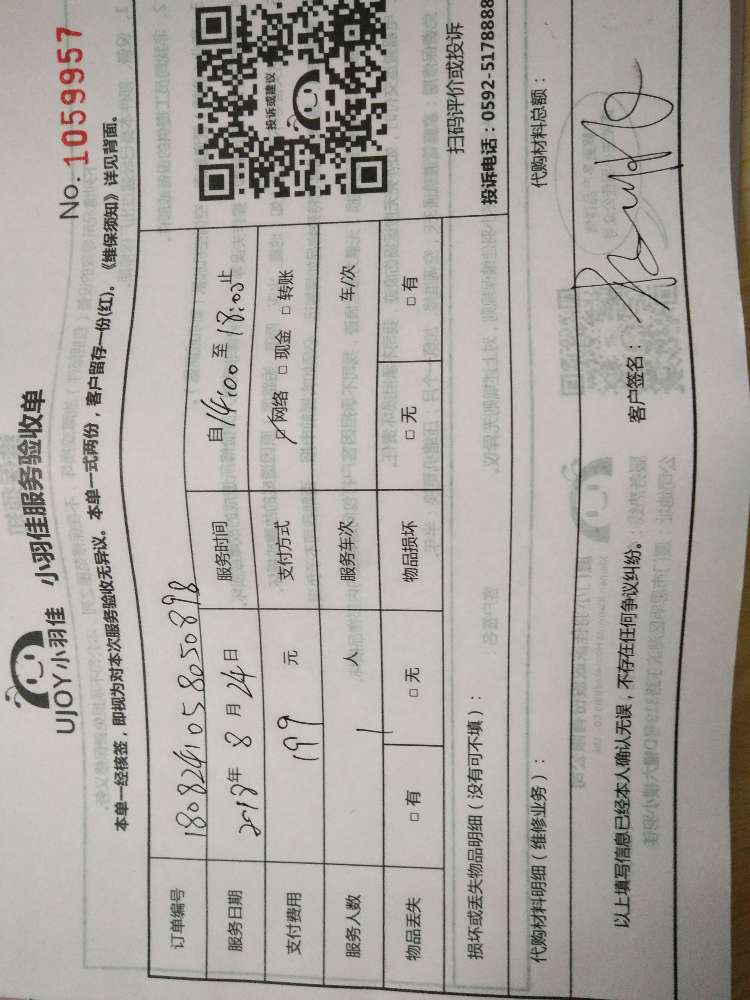 UJOY小羽佳 小羽佳服务验收单
No. 1059957
本单一经核签，即视为对本次服务验收无异议。本单一式两份，客户留存一份(红)。《维保须知》详见背面。
订单编号 180824105805 0898
服务日期 2018年 8 月 24 日 服务时间 自 14:00 至 18:00 止
支付费用 199 元 支付方式 ☑ 网络 □ 现金 □ 转账
服务人数 1 人 服务车次 车/次
物品丢失 □ 有 □ 无 物品损坏 □ 无 □ 有
投诉或建议
扫码评价或投诉
投诉电话：0592-5178888
损坏或丢失物品明细（没有可不填）：
代购材料明细（维修业务）： 代购材料总额：
以上填写信息已经本人确认无误，不存在任何争议纠纷。 客户签名：